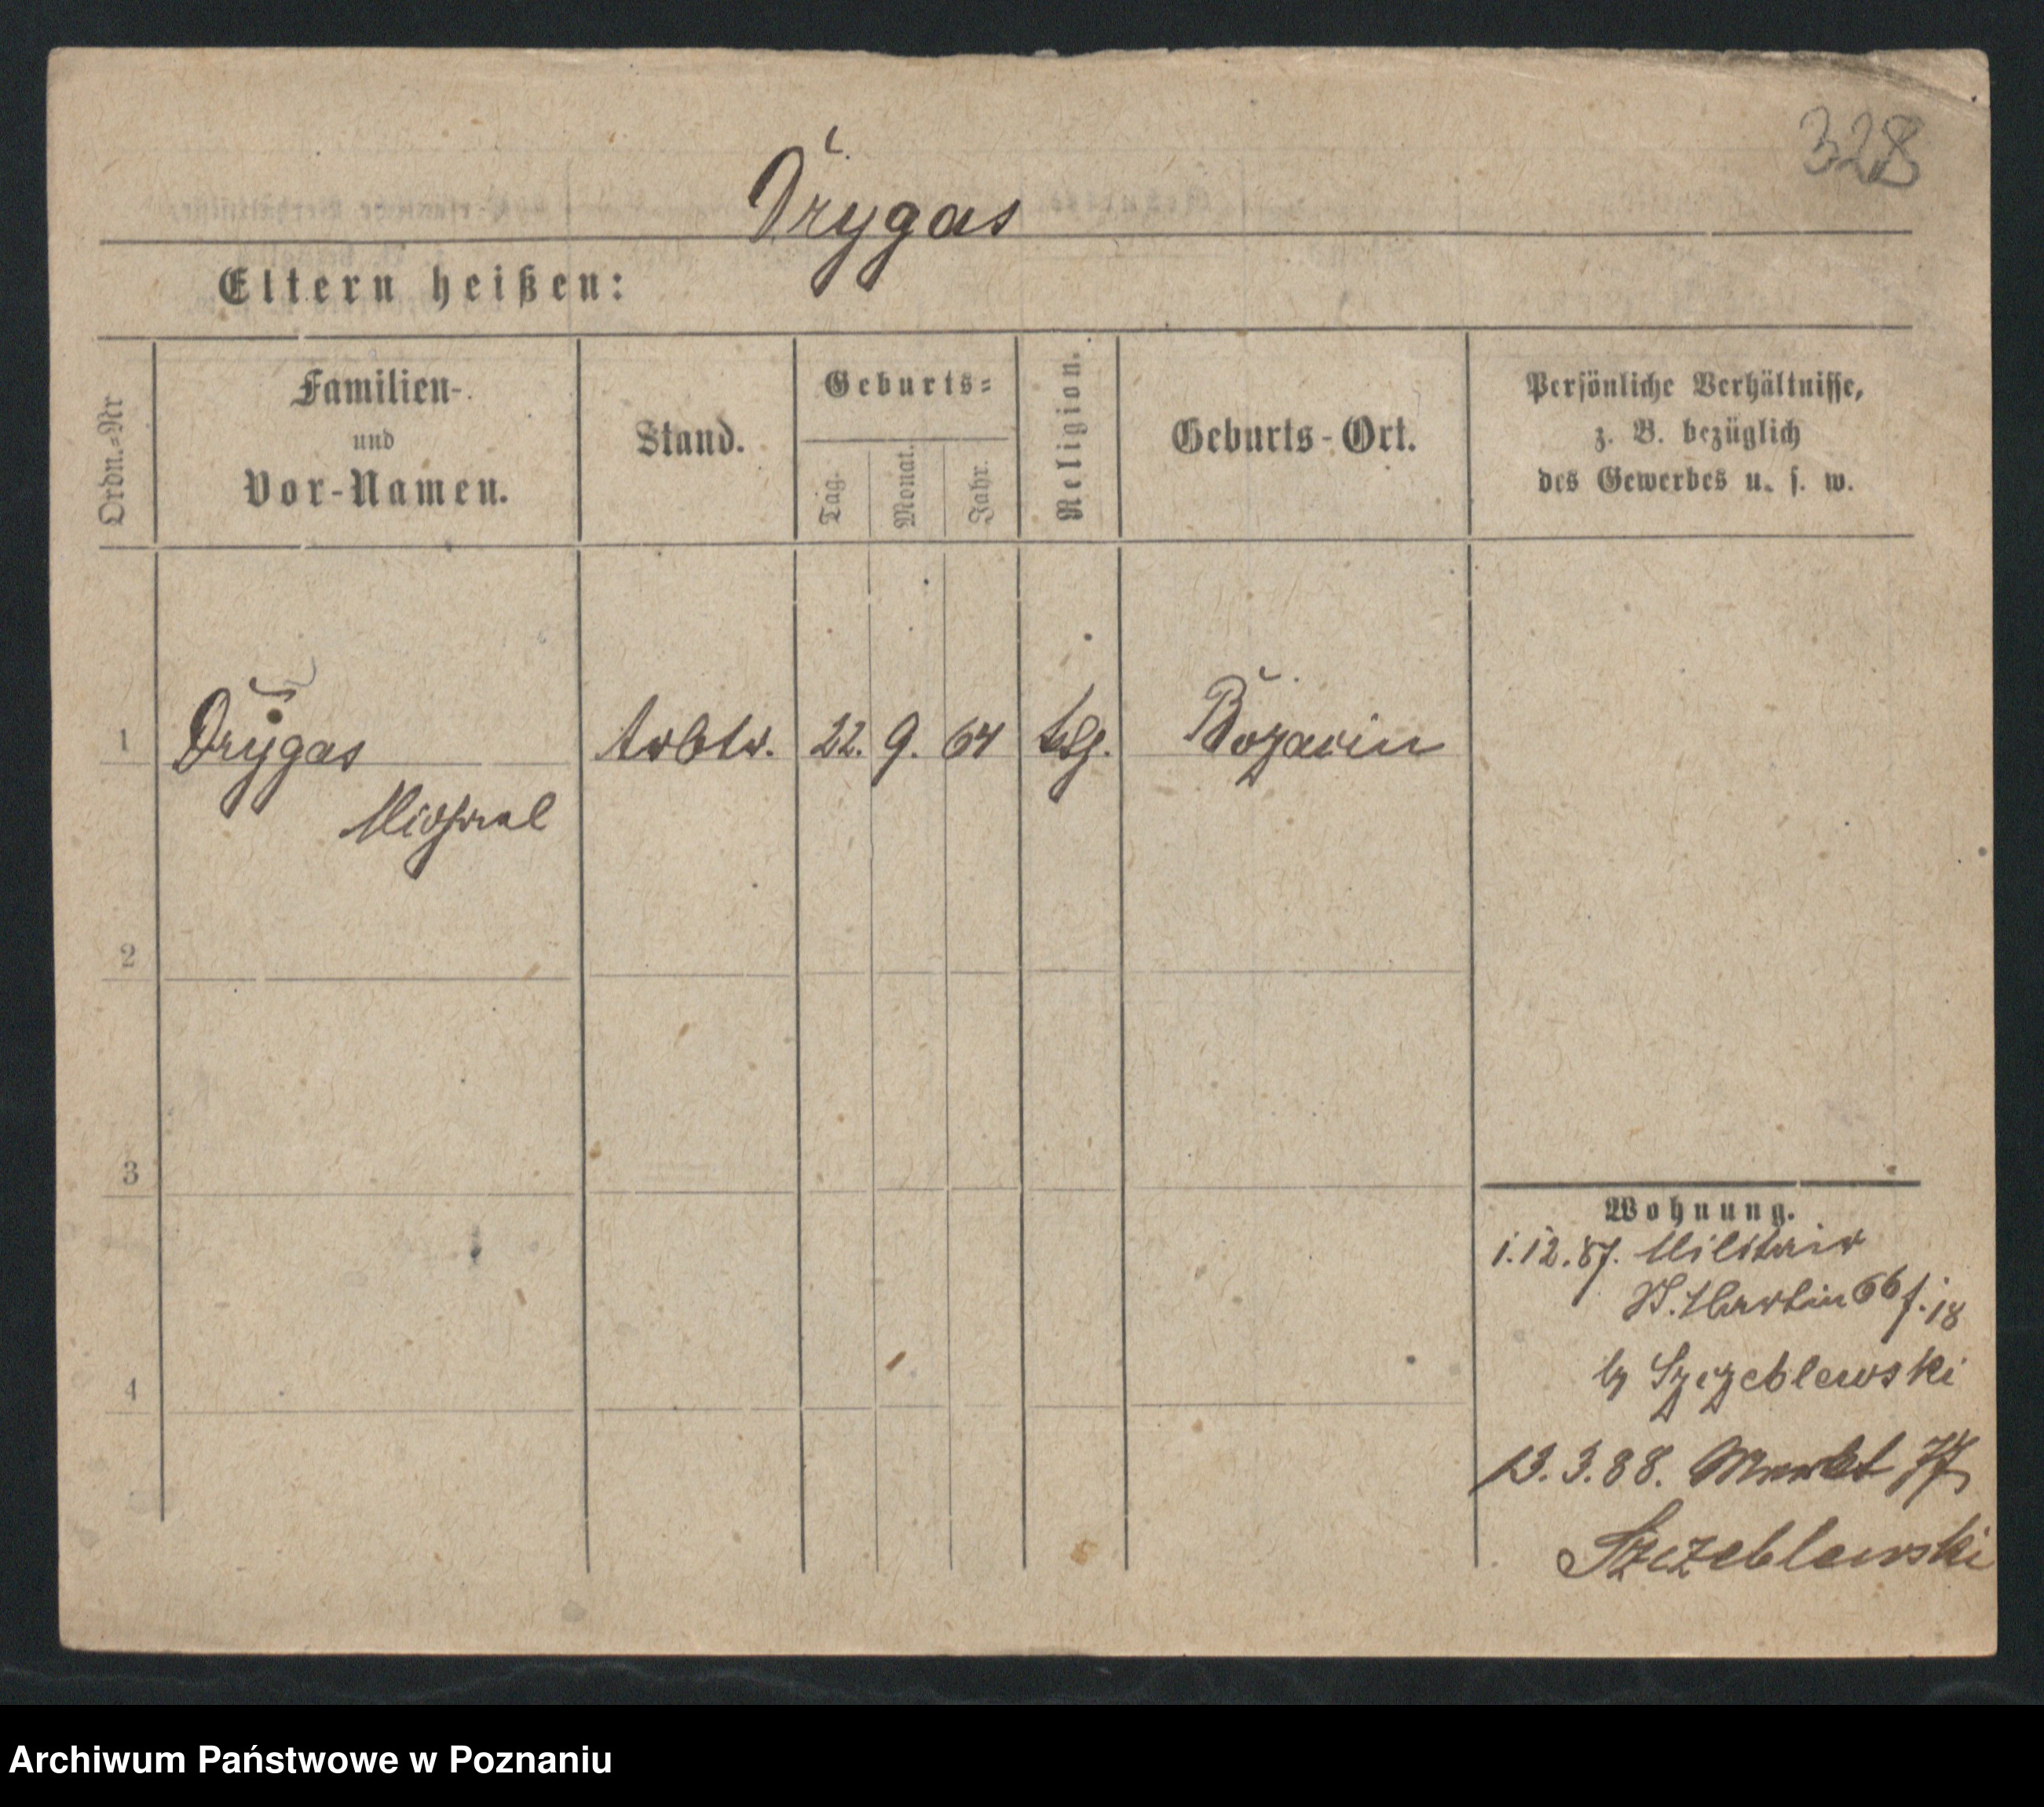 328
Drygas
Eltern heißen:
Ordn.=Nr
Familien-
und
Vor-Namen.
Stand.
Geburts=
Tag.
Monat.
Jahr.
Religion.
Geburts-Ort.
Persönliche Verhältnisse,
z. B. bezüglich
des Gewerbes u. s. w.
1 Drygas Arbtr. 22. 9. 64 Bożacin
Michael
2
3
4
Wohnung.
1.12.87. Militair
St. Martin 66 f. 18
by Szczeblewski
13.3.88. Markt 77
Szczeblewski
Archiwum Państwowe w Poznaniu